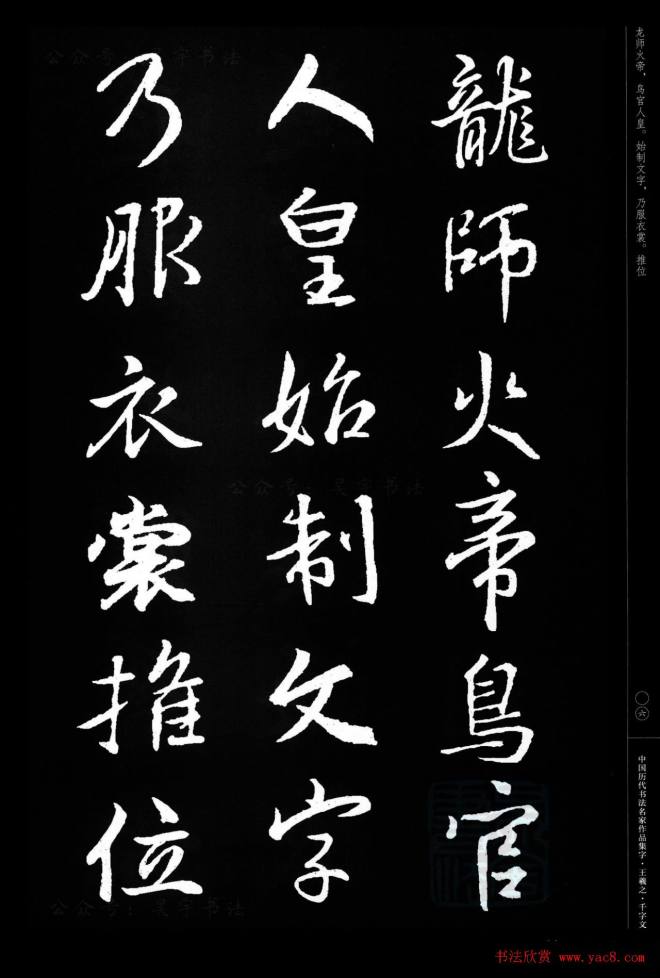 龍師火帝鳥官
人皇始制文字
乃服衣裳推位
龙师火帝，鸟官人皇。始制文字，乃服衣裳。推位
〇六
中国历代书法名家作品集字·王羲之·千字文
公众号：吴宇书法
公众号：吴宇书法
公众号：吴宇书法
书法欣赏 www.yac8.com